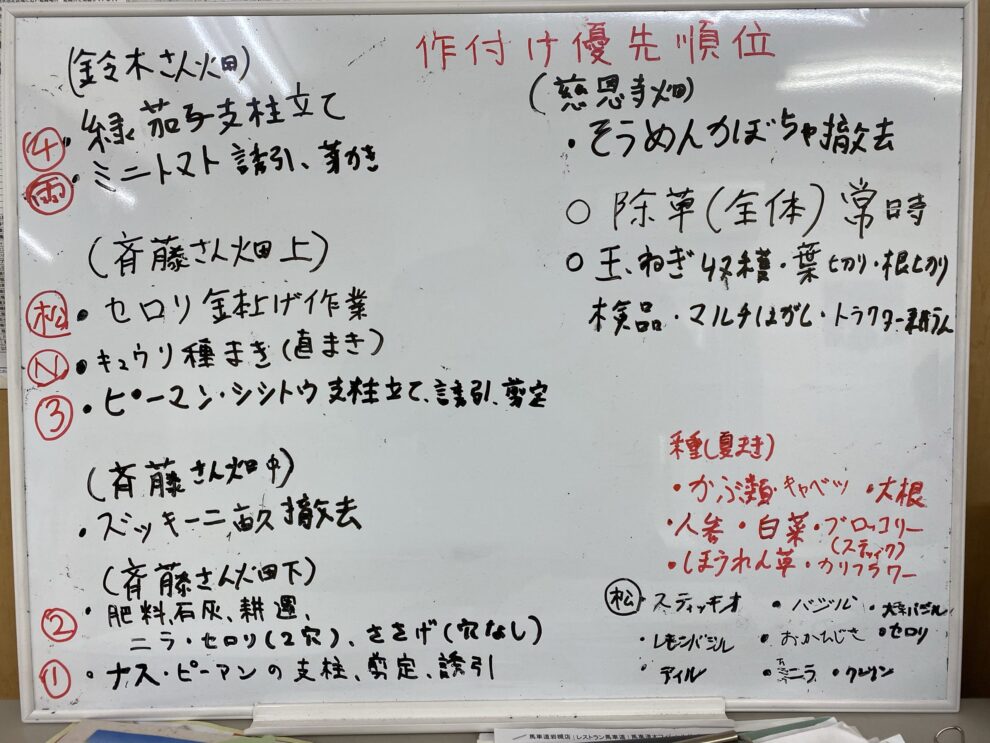 作付け優先順位
(鈴木さん畑)
④・緑茄子支柱立て
雨・ミニトマト誘引、芽かき
(斉藤さん畑上)
松・セロリ金上げ作業
N・キュウリ種まき(直まき)
③・ピーマン・シシトウ支柱立て、誘引、剪定
(斉藤さん畑中)
・ズッキーニ畝撤去
(斉藤さん畑下)
②・肥料石灰、耕運、
ニラ・セロリ(2穴)、ささげ(穴なし)
①・ナス・ピーアンの支柱、剪定、誘引
(慈恩寺畑)
・そうめんかぼちゃ撤去
○除草(全体)常時
○玉ねぎ収穫・葉切り・根切り
検品・マルチはがし・トラクター耕うん
種(夏まき)
・かぶ類・キャベツ・大根
・人参・白菜・ブロッコリー
(スティック)
・ほうれん草・カリフラワー
松・スティッキオ ・バジル ・大手バジル
・レモンバジル ・おかひじき ・セロリ
・ディル ・ニラ
馬車道岩槻店|レストラン馬車道|馬車道